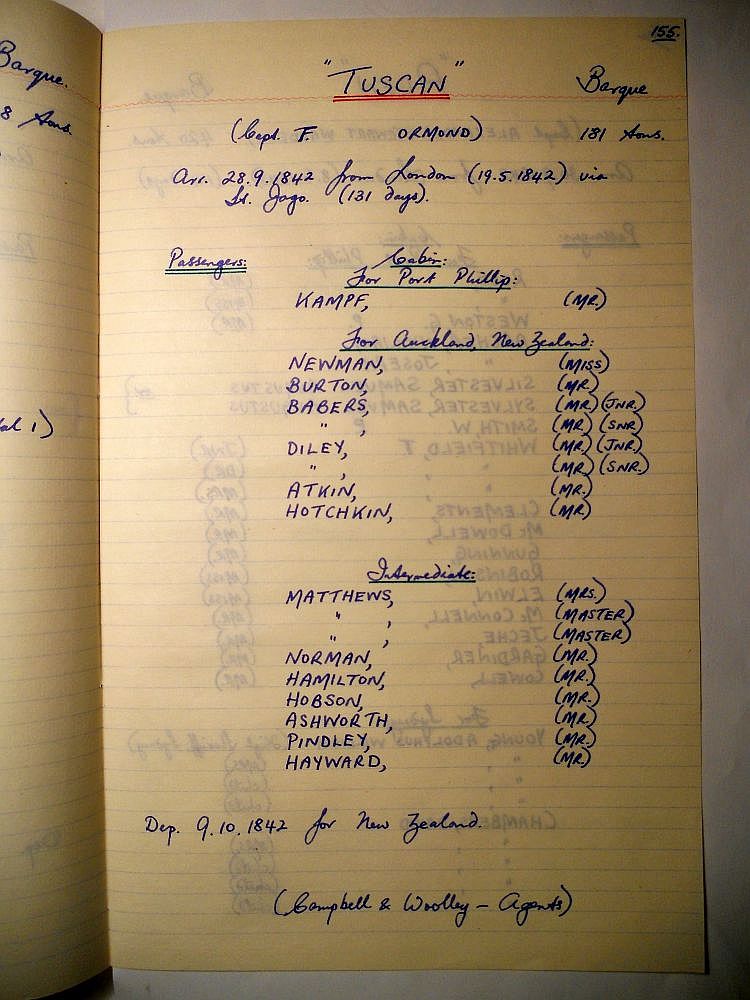 155.
"TUSCAN" Barque
(Capt. F. ORMOND) 181 tons.
Arr. 28.9.1842 from London (19.5.1842) via
St. Jago. (131 days).
Passengers: Cabin:
For Port Phillip:
KAMPF, (MR.)
For Auckland, New Zealand:
NEWMAN, (MISS)
BURTON, (MR.)
BABERS, (MR.) (JNR.)
" , (MR.) (SNR.)
DILEY, (MR.) (JNR.)
" , (MR.) (SNR.)
ATKIN, (MR.)
HOTCHKIN, (MR.)
Intermediate:
MATTHEWS, (MRS.)
" , (MASTER)
" , (MASTER)
NORMAN, (MR.)
HAMILTON, (MR.)
HOBSON, (MR.)
ASHWORTH, (MR.)
PINDLEY, (MR.)
HAYWARD, (MR.)
Dep. 9.10.1842 for New Zealand.
(Campbell & Woolley - Agents)
Barque.
8 tons.
1)